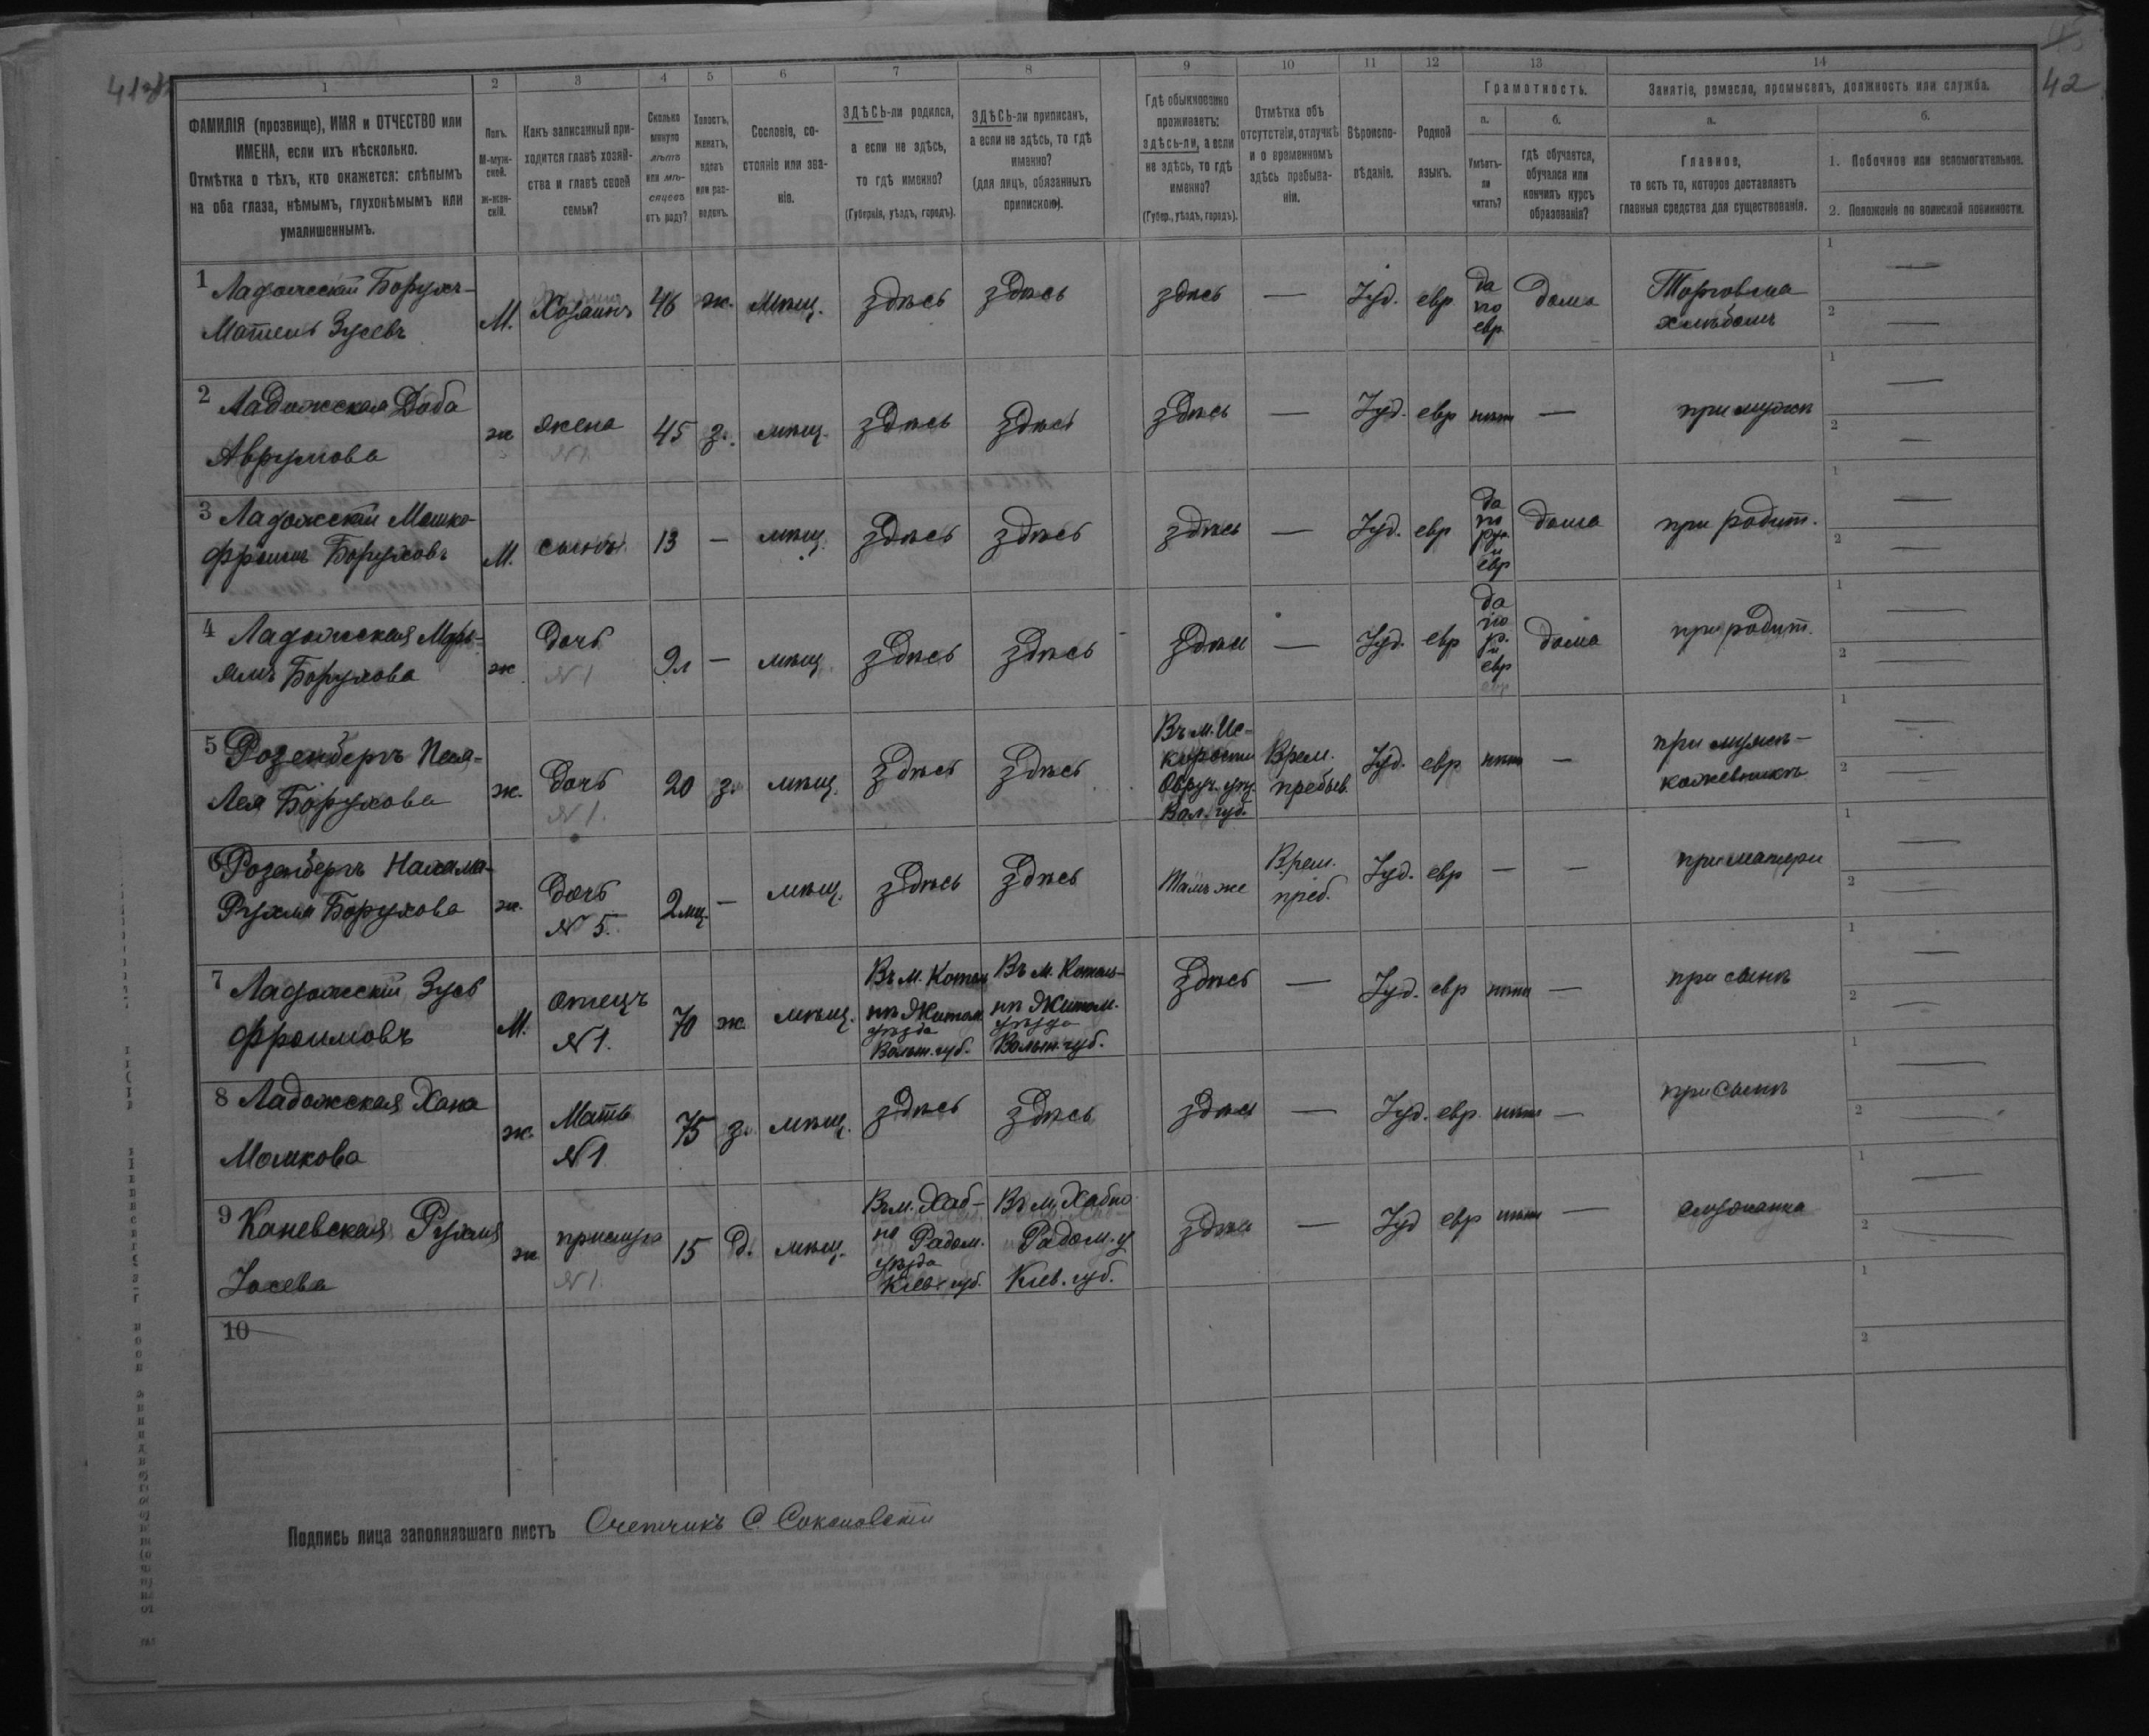 42
1
2
3
4
5
6
7
8
9
10
11
12
13
14
ФАМИЛІЯ (прозвище), ИМЯ и ОТЧЕСТВО или
ИМЕНА, если ихъ нѣсколько.
Отмѣтка о тѣхъ, кто окажется: слѣпымъ
на оба глаза, нѣмымъ, глухонѣмымъ или
умалишеннымъ.
Полъ.
М-муж-
ской.
ж-жен-
скій.
Какъ записанный при-
ходится главѣ хозяй-
ства и главѣ своей
семьи?
Сколько
минуло
лѣтъ
или мѣ-
сяцевъ
отъ роду?
Холостъ,
женатъ,
вдовъ
или раз-
веденъ.
Сословіе, со-
стояніе или зва-
ніе.
ЗДѢСЬ-ли родился,
а если не здѣсь,
то гдѣ именно?
(Губернія, уѣздъ, городъ).
ЗДѢСЬ-ли приписанъ,
а если не здѣсь, то гдѣ
именно?
(для лицъ, обязанныхъ
припискою).
Гдѣ обыкновенно
проживаетъ:
здѣсь-ли, а если
не здѣсь, то гдѣ
именно?
(Губер., уѣздъ, городъ).
Отмѣтка объ
отсутствіи, отлучкѣ
и о временномъ
здѣсь пребыва-
ніи.
Вѣроиспо-
вѣданіе.
Родной
языкъ.
Грамотность.
а.
Умѣетъ-
ли
читать?
б.
гдѣ обучается,
обучался или
кончилъ курсъ
образованія?
Занятіе, ремесло, промыселъ, должность или служба.
а.
Главное,
то есть то, которое доставляетъ
главныя средства для существованія.
б.
1. Побочное или вспомогательное.
2. Положеніе по воинской повинности.
1 Ладожскій Борухъ-
Мотель Зусевъ
М. Хозяинъ 46 ж. Мѣщ. здѣсь здѣсь здѣсь — Іуд. евр
да
по
евр.
дома
Торговля
хлѣбомъ
1 —
2 —
2 Ладожская Доба
Аврумова
ж жена
N 1
45 з. мѣщ. здѣсь здѣсь здѣсь — Іуд. евр нѣтъ — при мужѣ
1 —
2 —
3 Ладожскій Мошко-
Фроимъ Боруховъ
М. сынъ 13 — мѣщ. здѣсь здѣсь здѣсь — Іуд. евр
да
по
рус.
и
евр
дома при родит.
1 —
2 —
4 Ладожская Мирь-
ямъ Борухова
ж. дочь
N 1
9л — мѣщ здѣсь здѣсь здѣсь — Іуд. евр
да
по
р.
и
евр
дома при родит.
1 —
2 —
5 Розенбергъ Песя-
Лея Борухова
ж. дочь
N 1.
20 з. мѣщ. здѣсь здѣсь
Въ м. Ис-
корости
Овруч. уѣз.
Вол. губ.
Врем.
пребыв.
Іуд. евр нѣтъ —
при мужѣ-
кожевникѣ
1 —
2 —
6 Розенбергъ Нахама-
Рухля Борухова
ж. дочь
N 5.
2мц. — мѣщ. здѣсь здѣсь Тамъ же
Врем.
преб.
Іуд. евр — — при матери
1 —
2 —
7 Ладожскій Зусь
Фроимовъ
М. отецъ
N 1.
70 ж. мѣщ.
Въ м. Котель-
нѣ Житом
уѣзда
Волын. губ.
Въ м. Котель-
нѣ Житом.
уѣзда
Волын. губ.
здѣсь — Іуд. евр нѣтъ — при сынѣ
1 —
2 —
8 Ладожская Хана
Мошкова
ж. Мать
N 1
75 з. мѣщ. здѣсь здѣсь здѣсь — Іуд. евр. нѣтъ — при сынѣ
1 —
2 —
9 Каневская Рухля
Іосева
ж прислуга
N 1.
15 д. мѣщ.
Въ м. Хаб-
но Радом.
уѣзда
Кіев. губ.
Въ м. Хабно
Радом. у
Кіев. губ.
здѣсь — Іуд евр нѣтъ — служанка
1 —
2 —
10
1
2
Подпись лица заполнявшаго листъ Счетчикъ С. Соколовскій